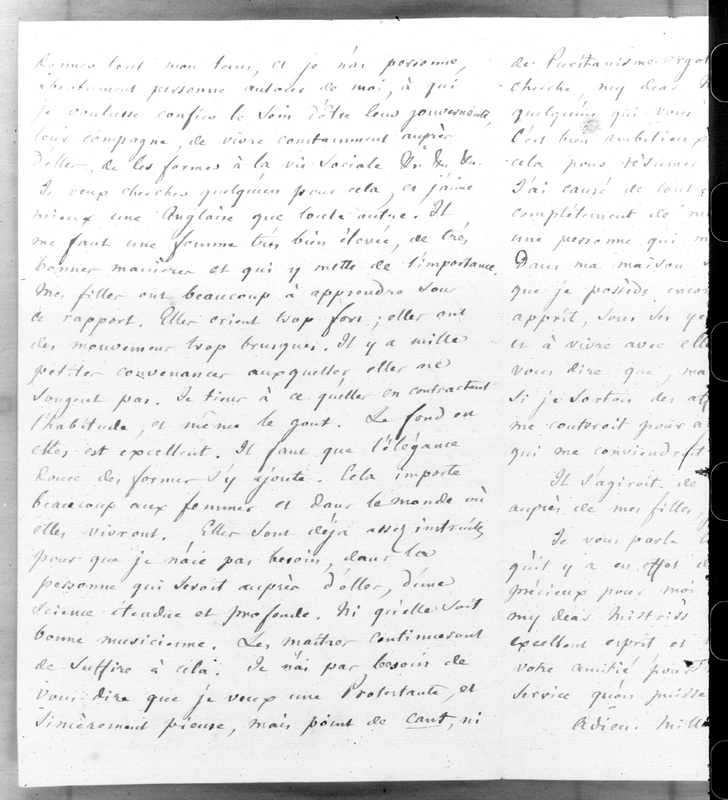 donner tout mon tems, et je n'ai personne,
absolument personne autour de moi, à qui
je voulusse confier le soin d'être leur gouvernante,
leur compagne, de vivre constamment auprès
d'elles, de les former à la vie sociale &c &c &c.
Je veux chercher quelqu'un pour cela, et j'aime
mieux une Anglaise que toute autre. Il
me faut une femme très bien élevée, de très
bonnes manières et qui y mette de l'importance.
Mes filles ont beaucoup à apprendre sous
ce rapport. Elles crient trop fort ; elles ont
des mouvemens trop brusques. Il y a mille
petites convenances auxquelles elles ne
songent pas. Je tiens à ce qu'elles en contractent
l'habitude, et même le gout. Le fond en
elles est excellent. Il faut que l'élégance
douce des formes s'y ajoute. Cela importe
beaucoup aux femmes et dans le monde où
elles vivront. Elles sont déjà assez instruites
pour que je n'aie pas besoin, dans la
personne qui seroit auprès d'elles, d'une
science étendue et profonde. Ni qu'elle soit
bonne musicienne. Les maîtres continueront
de suffire à cela. Je n'ai pas besoin de
vous dire que je veux une Protestante, et
sincèrement pieuse, mais point de cant, ni
de Puritanisme
cherche, my dear
quelqu'un qui vous
C'est bien ambitieux
cela pour résumer
J'ai causé de tout
complètement de
une personne qui
Dans ma maison
que je possède encor
apprît, sous ses
et à vivre avec elle
vous dire que, ma
si je sortois des
me couteroit pour
qui me conviendroit
Il s'agiroit de
auprès de mes filles,
Je vous parle
qu'il y a en effet
précieux pour moi
my dear Mistriss
excellent esprit et
votre amitié pour
service qu'on puisse
Adieu.